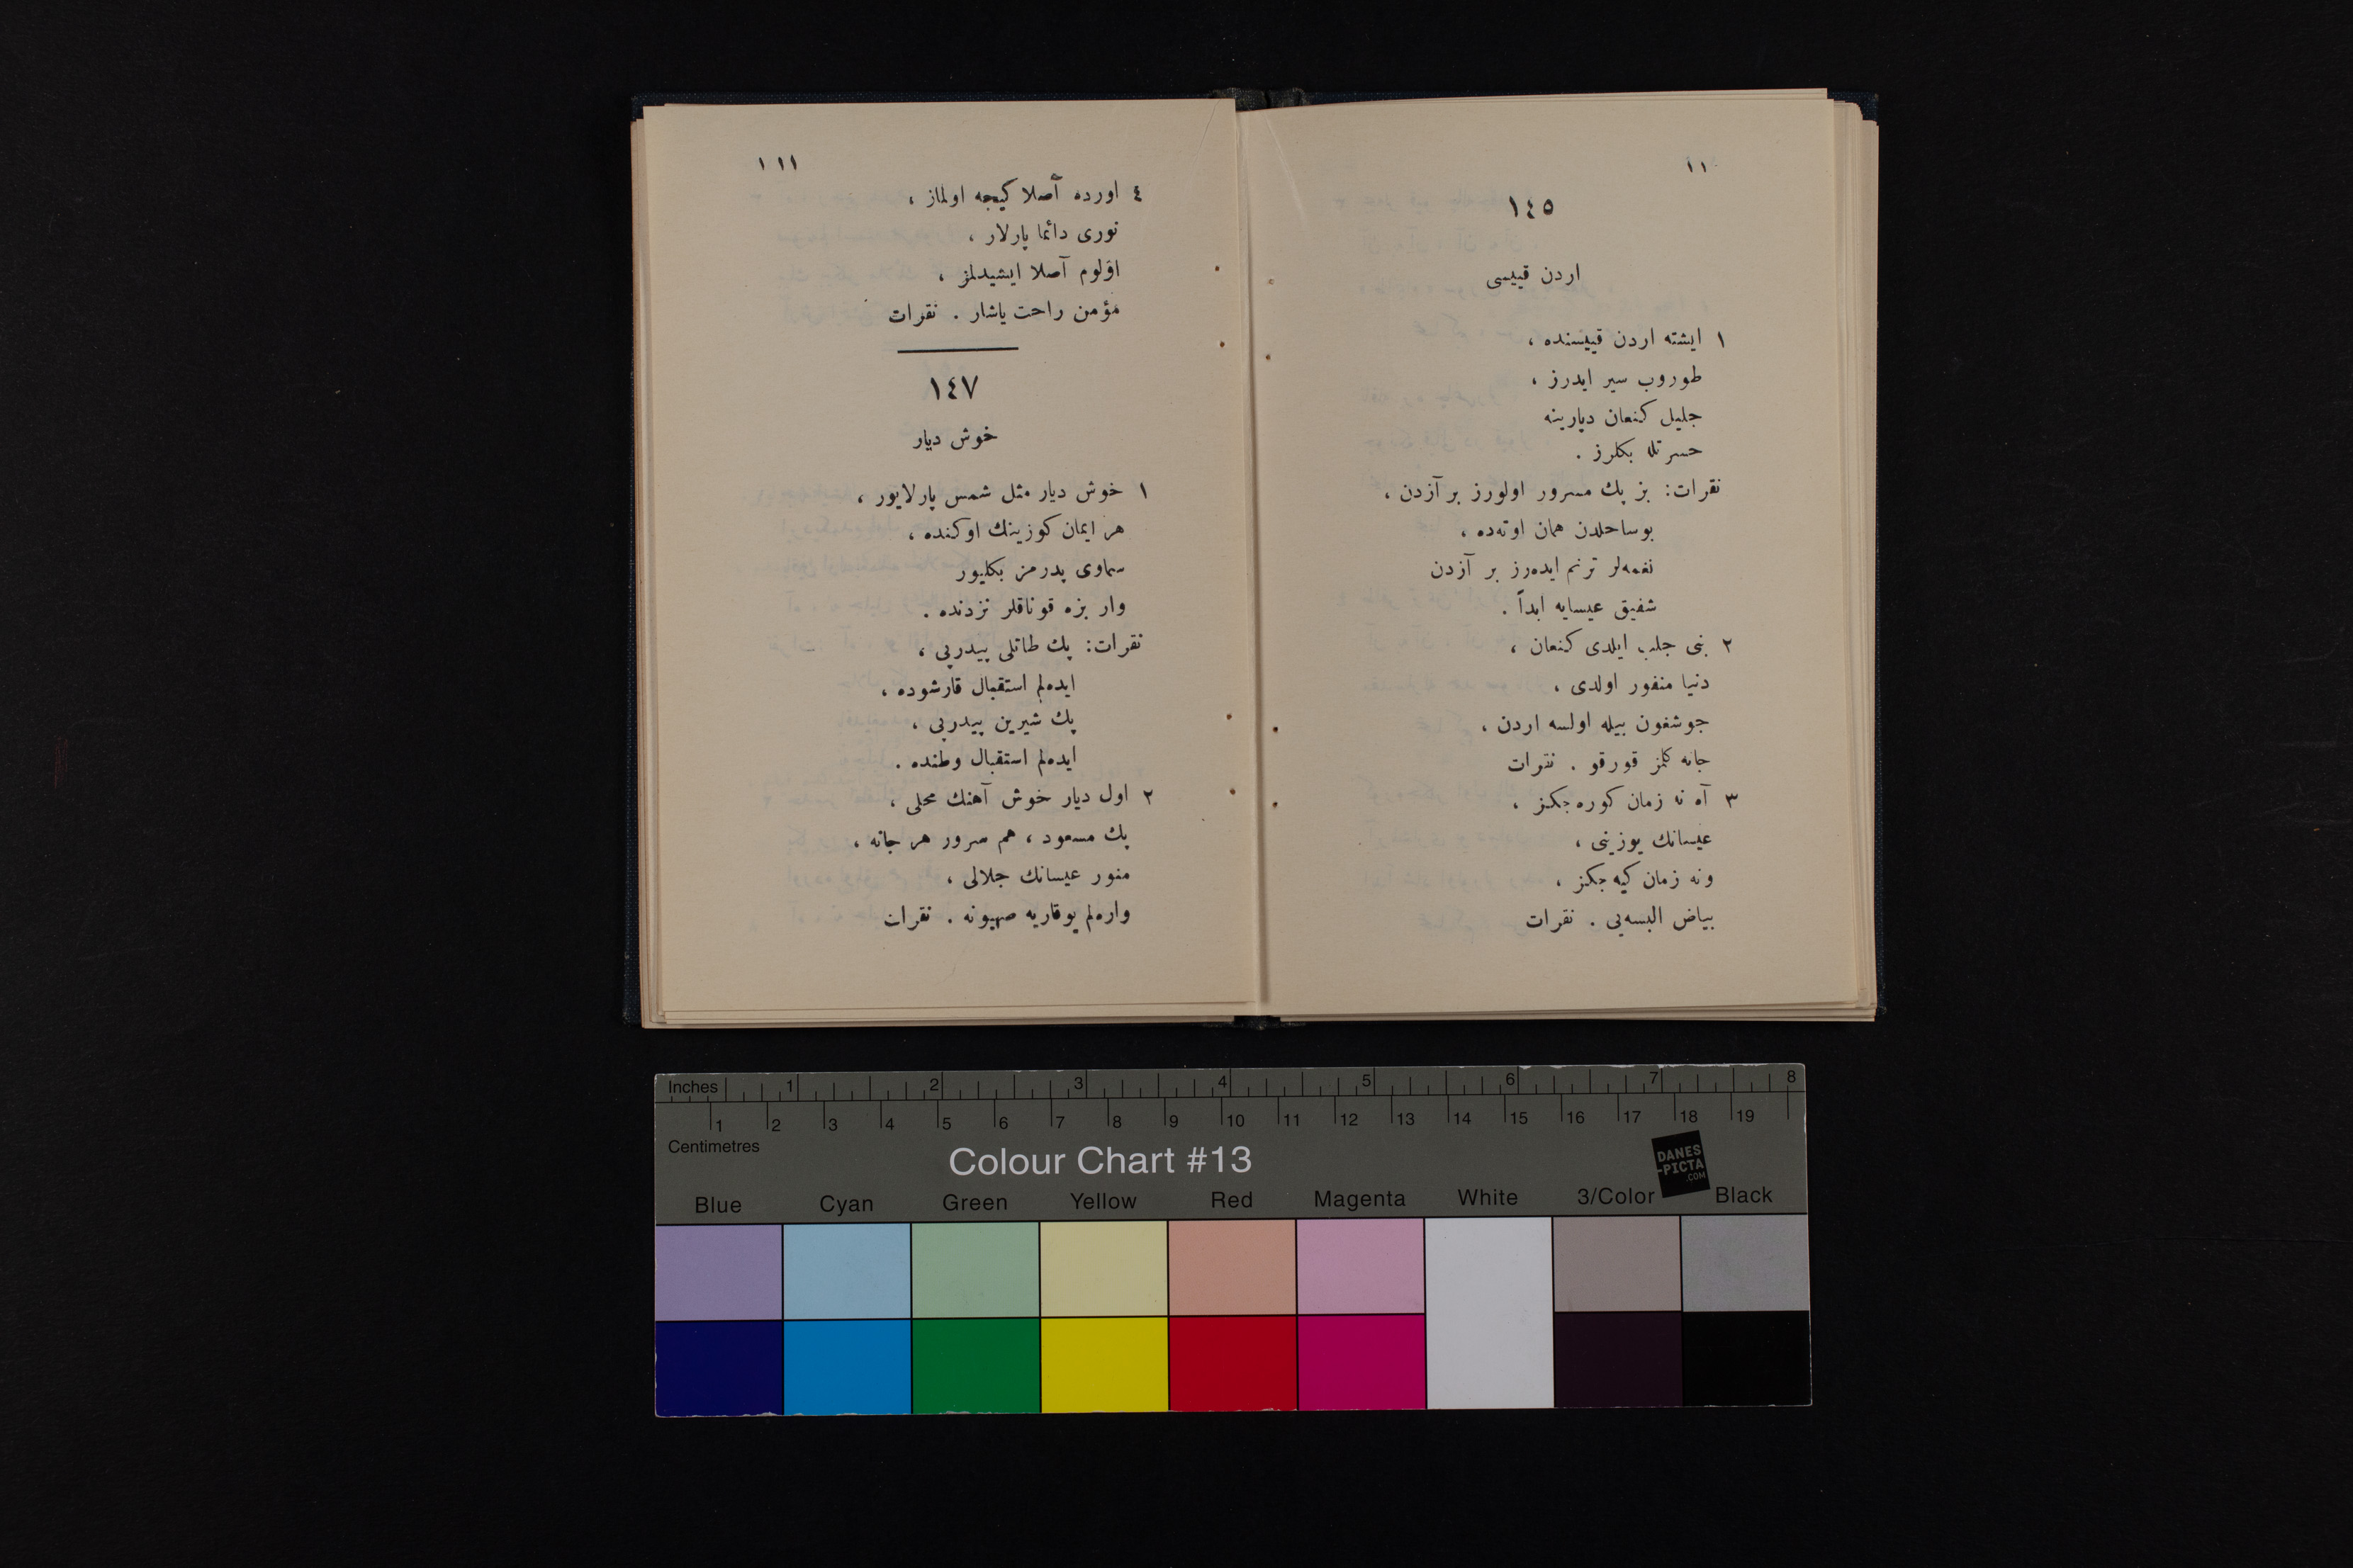 ١١٠
١٤٥
اردن قييسى
١ ايشته اردن قييسنده ،
طوروب سير ايدرز ،
جليل كنعان ديارينه
حسرتله بكلرز .
نقرات: بز پك مسرور اولورز بر آزدن ،
بوساحلدن همان اوته‌ده ،
نغمه‌لر ترنم ايده‌رز بر آزدن
شفيق عيسايه ابداً .
٢ بنى جلب ايلدى كنعان ،
دنيا منفور اولدى ،
جوشغون بيله اولسه اردن ،
جانه كلمز قورقو . نقرات
٣ آه نه زمان كوره‌جكز ،
عيسانك يوزينى ،
ونه زمان كيه‌جكز ،
بياض البسه‌يى . نقرات
١١١
٤ اورده آصلا كيجه اولماز ،
نورى دائما پارلار ،
اؤلوم آصلا ايشيدلمز ،
مؤمن راحت ياشار . نقرات
١٤٧
خوش ديار
١ خوش ديار مثل شمس پارلايور ،
هر ايمان كوزينك اوكنده ،
سماوى پدرمز بكليور
وار بزه قوناقلر نزدنده .
نقرات: پك طاتلى پيدرپى ،
ايده‌لم استقبال قارشوده ،
پك شيرين پيدرپى ،
ايده‌لم استقبال وطنده .
٢ اول ديار خوش آهنك محلى ،
پك مسعود ، هم سرور هر جانه ،
منور عيسانك جلالى ،
واره‌لم يوقاريه صهيونه . نقرات
Inches 1 2 3 4 5 6 7 8
1 2 3 4 5 6 7 8 9 10 11 12 13 14 15 16 17 18 19
Centimetres
Colour Chart #13
DANES
-PICTA
.COM
Blue Cyan Green Yellow Red Magenta White 3/Color Black